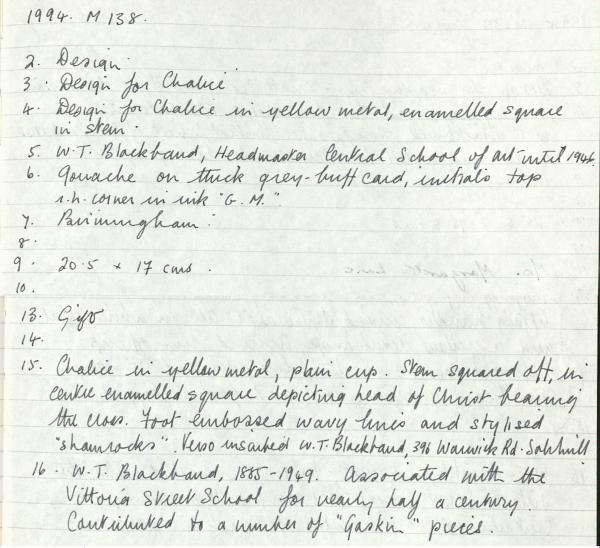 1994. M 138.
2. Design.
3. Design for Chalice.
4. Design for Chalice in yellow metal, enamelled square
in stem.
5. W.T. Blackband, Headmaster Central School of art until 1946.
6. Gouache on thick grey-buff card, initials top
r.h. corner in ink "G.M."
7. Birmingham.
8.
9. 20.5 x 17 cms.
10.
13. Gift
14.
15. Chalice in yellow metal, plain cup. Stem squared off, in
centre enamelled square depicting head of Christ bearing
the cross. Foot embossed wavy lines and stylised
"shamrocks". Verso inscribed W.T. Blackband, 396 Warwick Rd. Solihull
16. W.T. Blackband, 1885-1949. Associated with the
Vittoria Street School for nearly half a century.
Contributed to a number of "Gaskin" pieces.